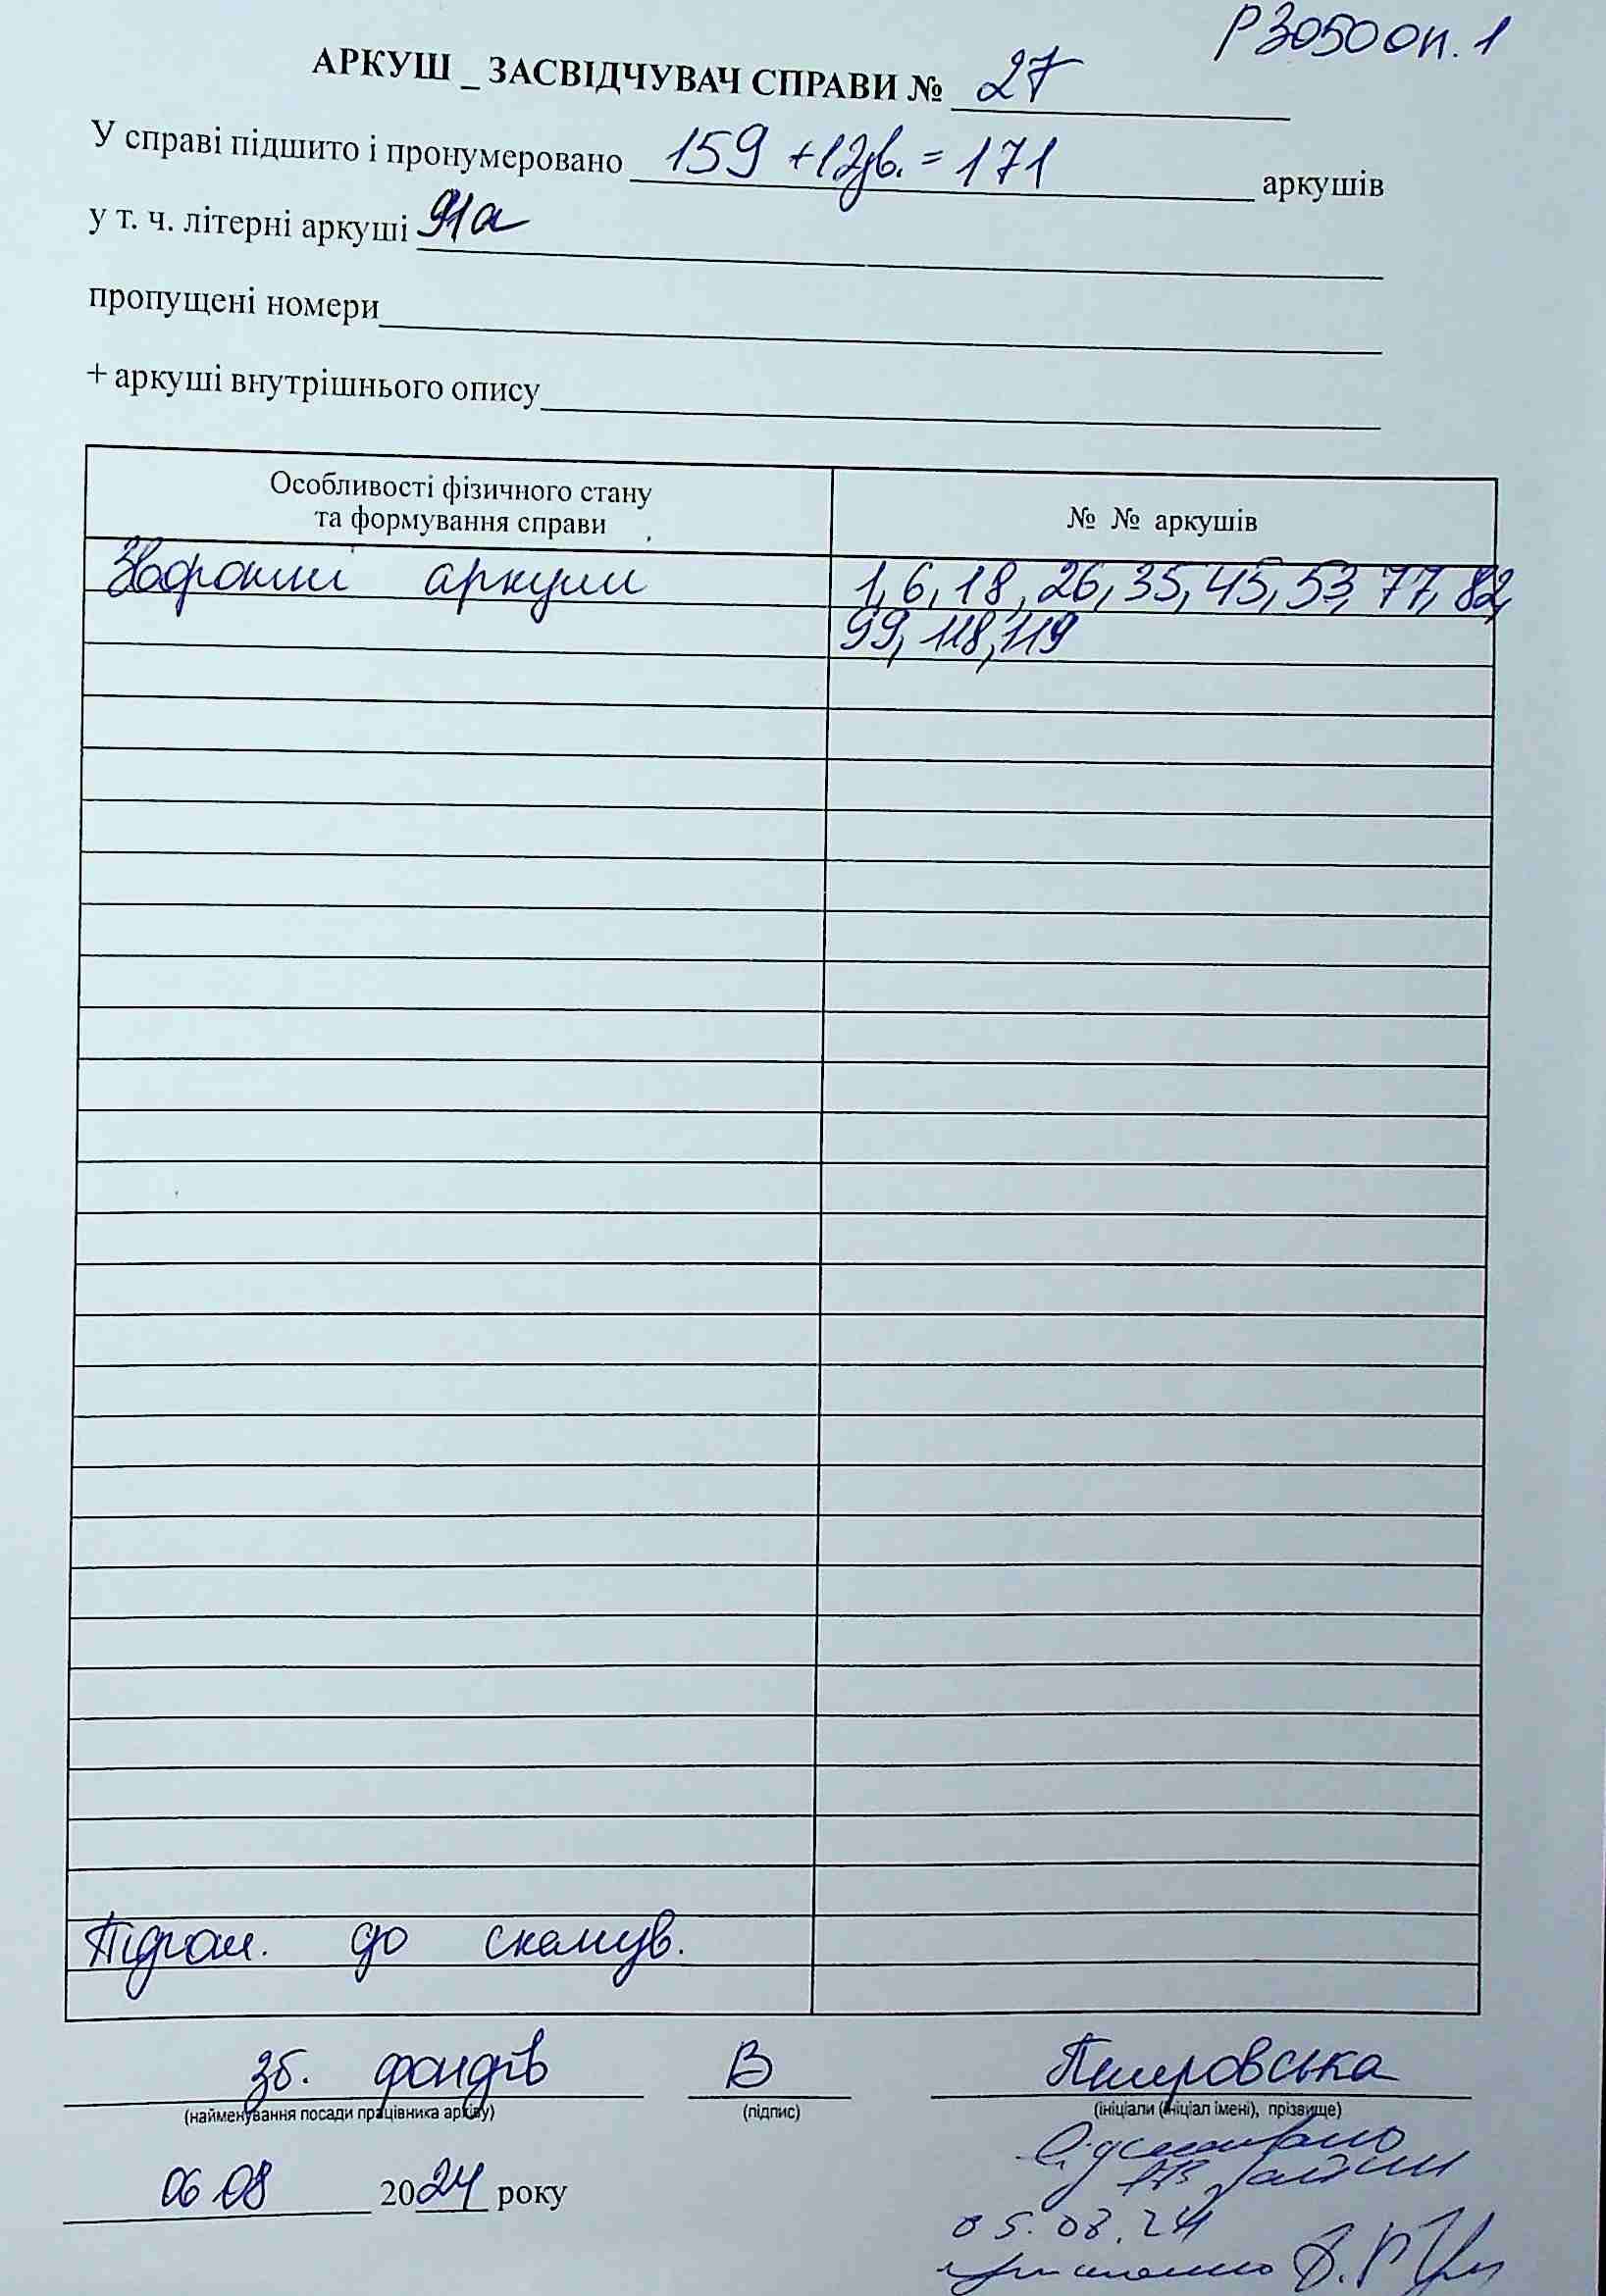 Р3050 оп. 1
АРКУШ _ ЗАСВІДЧУВАЧ СПРАВИ № 27
У справі підшито і пронумеровано 159 + 12зв. = 171 аркушів
у т. ч. літерні аркуші 91а
пропущені номери
+ аркуші внутрішнього опису
Особливості фізичного стану
та формування справи
№ № аркушів
Зворотні аркуші 1, 6, 18, 26, 35, 45, 53, 77, 82,
99, 118, 119
Підгот. до сканув.
зб. фондів В
(найменування посади працівника архіву) (підпис) (ініціали (ініціал імені), прізвище)
06 08 2024 року
Відскановано
05.08.24